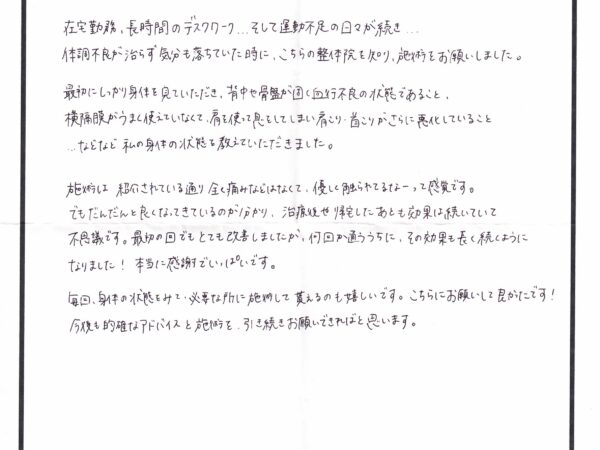 在宅勤務、長時間のデスクワーク…そして運動不足の日々が続き…
体調不良が治らず気分も落ちていた時に、こちらの整体院を知り、施術をお願いしました。
最初にしっかり身体を見ていただき、背中や骨盤が固く血行不良の状態であること、
横隔膜がうまく使えていなくて、肩を使って息をしてしまい肩こり・首こりがさらに悪化していること
…などなど 私の身体の状態を教えていただきました。
施術は 紹介されている通り 全く痛みなどはなくて、優しく触られてるなーって感覚です。
でもだんだんと良くなってきているのが分かり、治療後や帰宅したあとも効果は続いていて
不思議です。最初の回でもとても改善しましたが、何回か通ううちに、その効果も長く続くように
なりました！ 本当に感謝でいっぱいです。
毎回、身体の状態をみて、必要な所に施術して貰えるのも嬉しいです。こちらにお願いして良かたです！
今後も的確なアドバイスと施術を、引き続きお願いできればと思います。